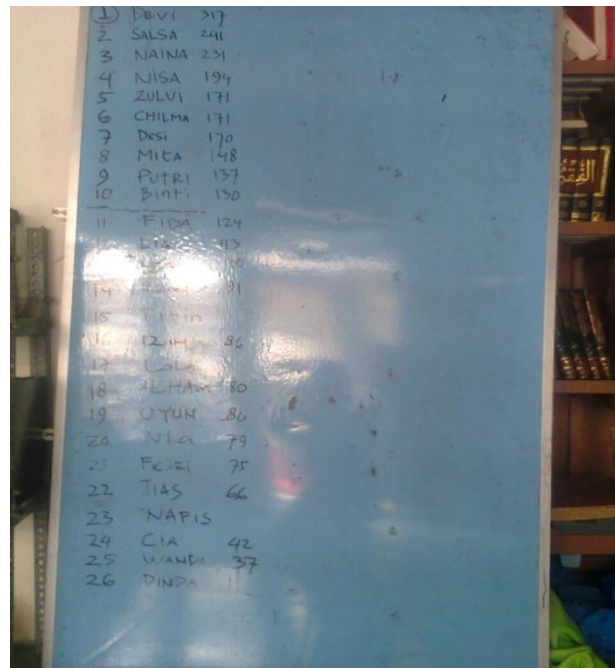 1 DEVI 317
2 SALSA 241
3 NAINA 231
4 NISA 194
5 ZULVI 171
6 CHILMA 171
7 Desi 170
8 MitA 148
9 PUTRI 137
10 Binti 130
11 FIDA 124
113
14 91
15 Titin
16 86
17 LaLa
18 ILHAM 80
19 UYUN 80
20 Via 79
21 75
22 TIAS 66
23 NAFIS
24 CIA 42
25 WANDI 37
26 DINDA
الفقه